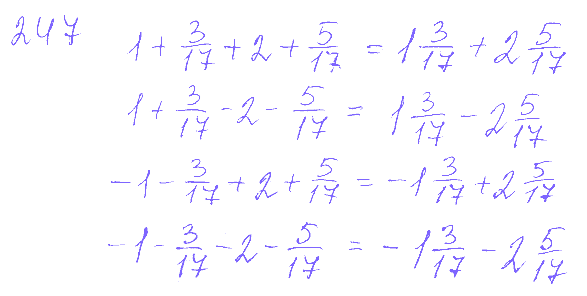 247
1 + 3/17 + 2 + 5/17 = 1 3/17 + 2 5/17
1 + 3/17 - 2 - 5/17 = 1 3/17 - 2 5/17
-1 - 3/17 + 2 + 5/17 = -1 3/17 + 2 5/17
-1 - 3/17 - 2 - 5/17 = -1 3/17 - 2 5/17